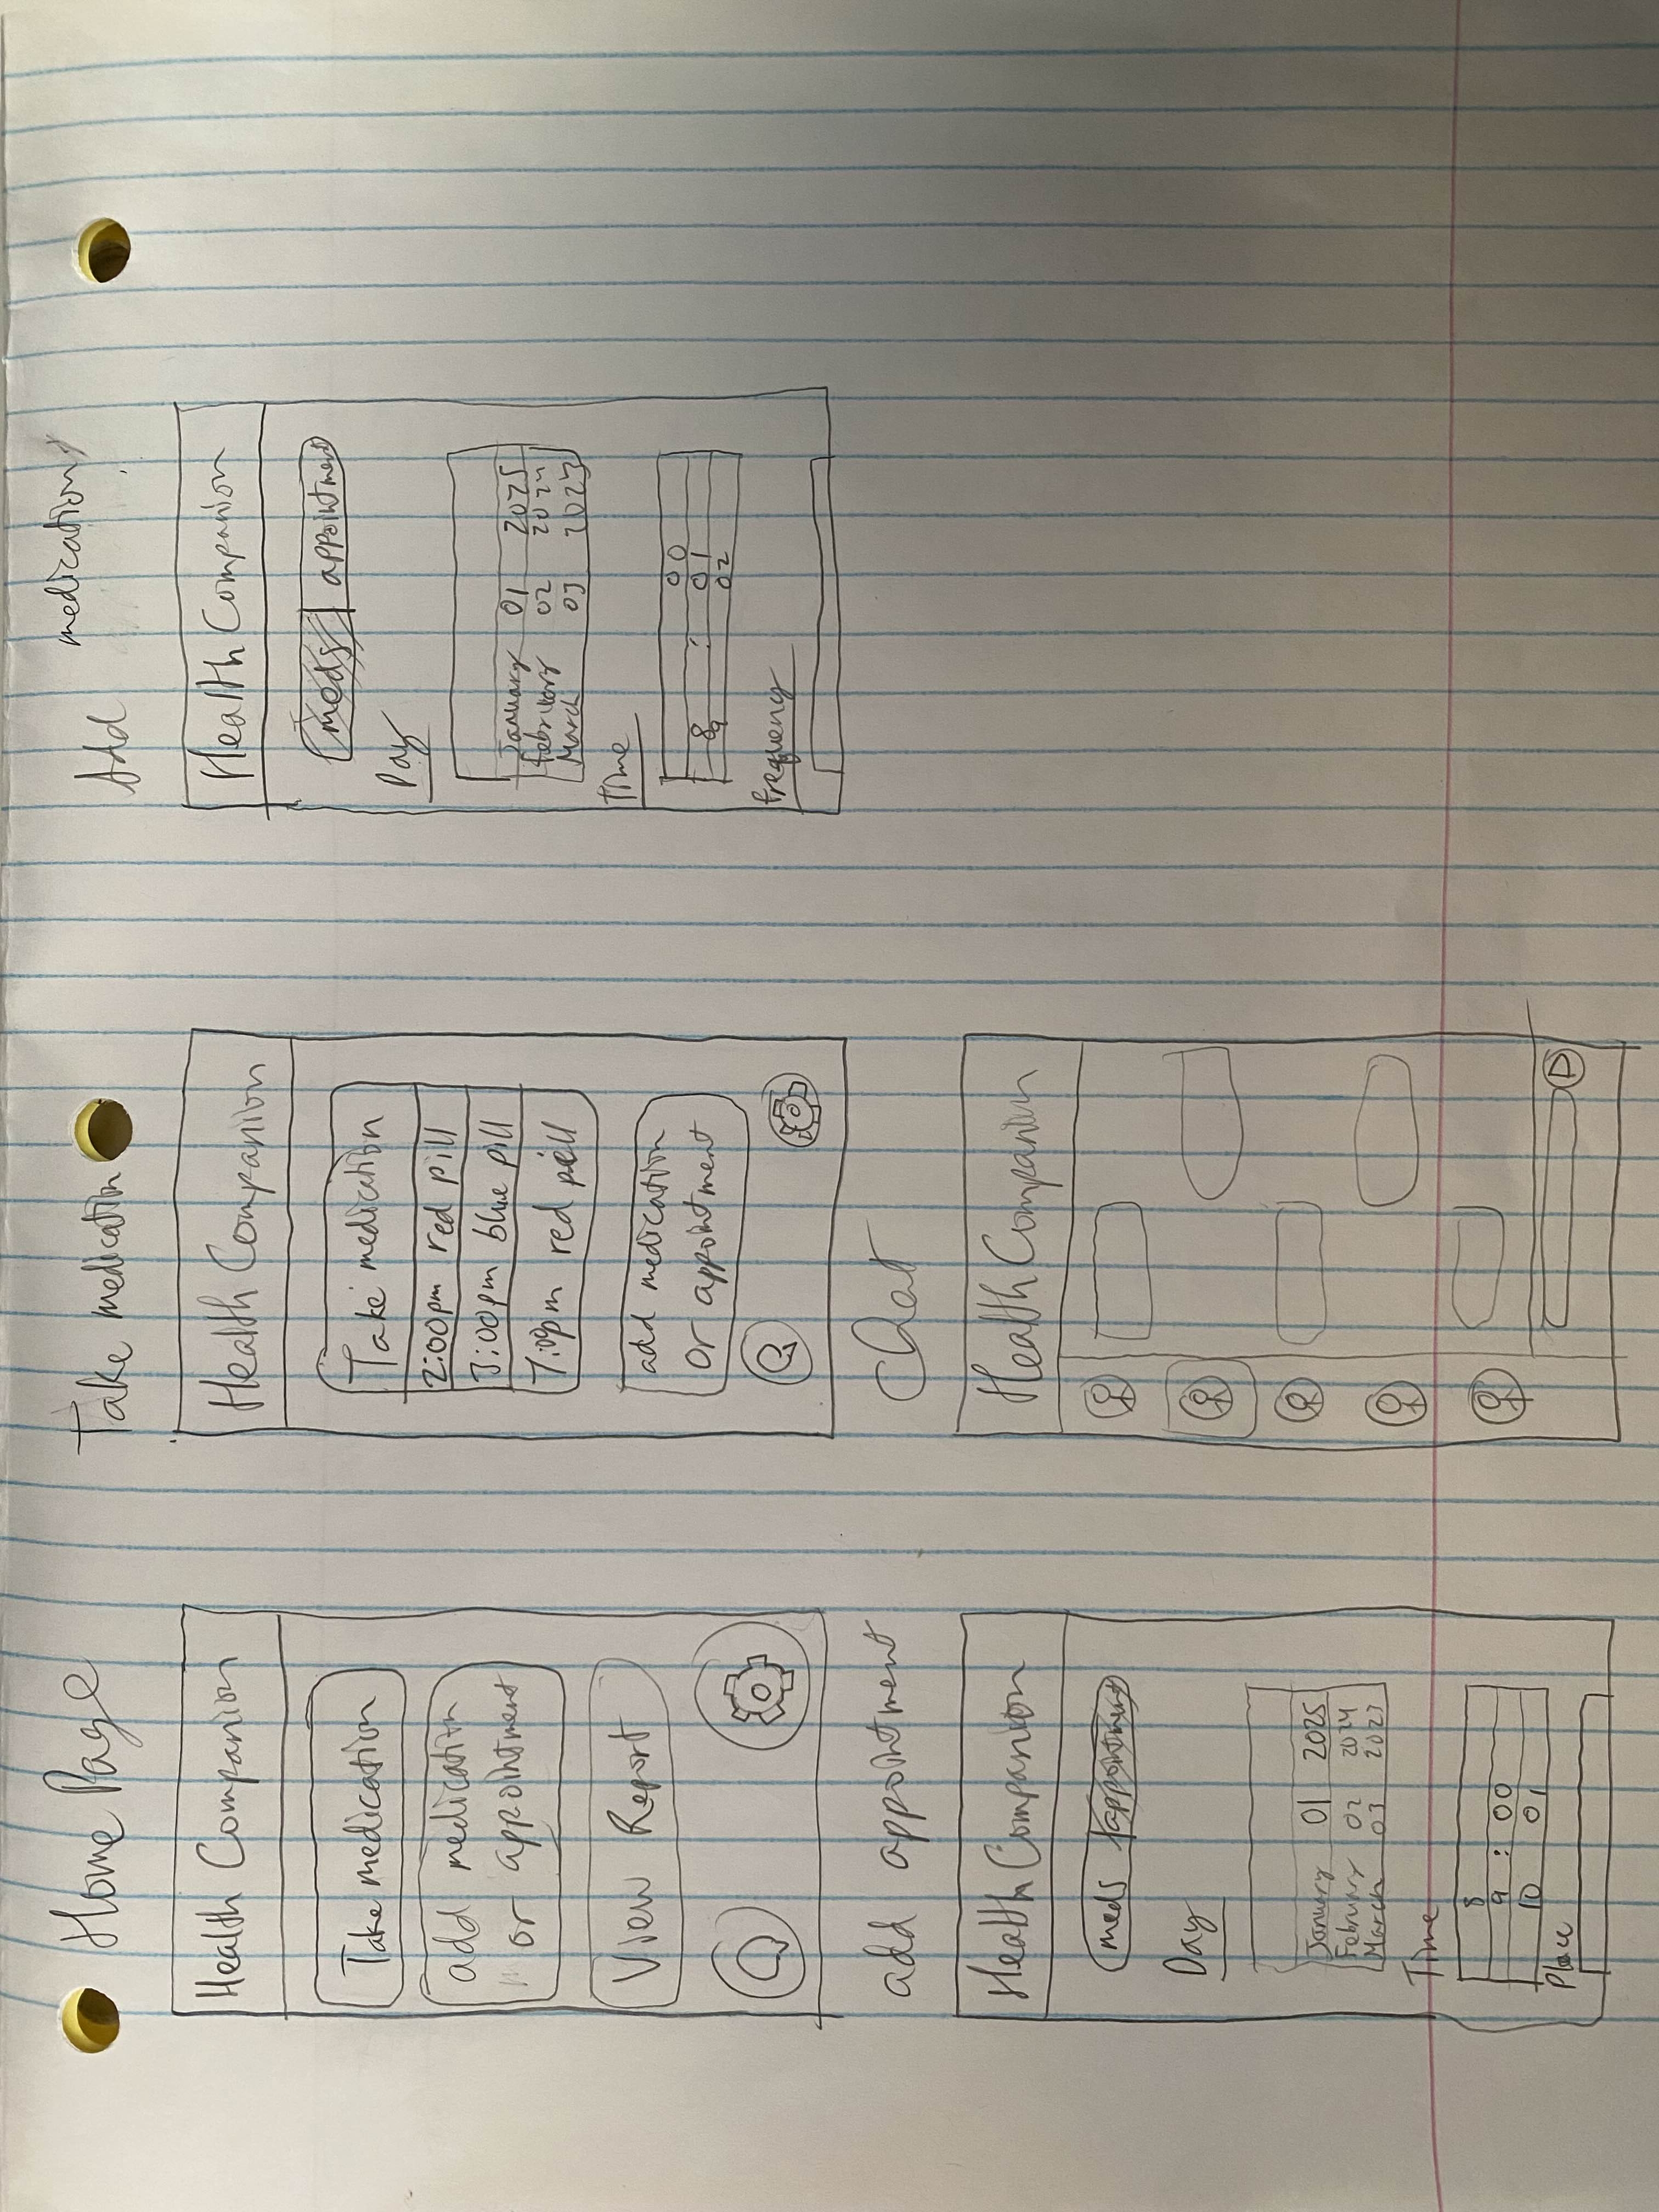 Home Page
Health Companion
Take medication
add medication
or appointment
View Report
Take medication
Health Companion
Take medication
2:00pm red pill
3:00pm blue pill
7:00pm red pill
add medication
or appointment
Add medication
Health Companion
meds appointment
Day
January 01 2025
February 02 2024
March 03 2023
Time
00
8 : 01
9 02
frequency
add appointment
Health Companion
meds appointment
Day
January 01 2025
February 02 2024
March 03 2023
Time
8
9 : 00
10 01
Place
Chat
Health Companion